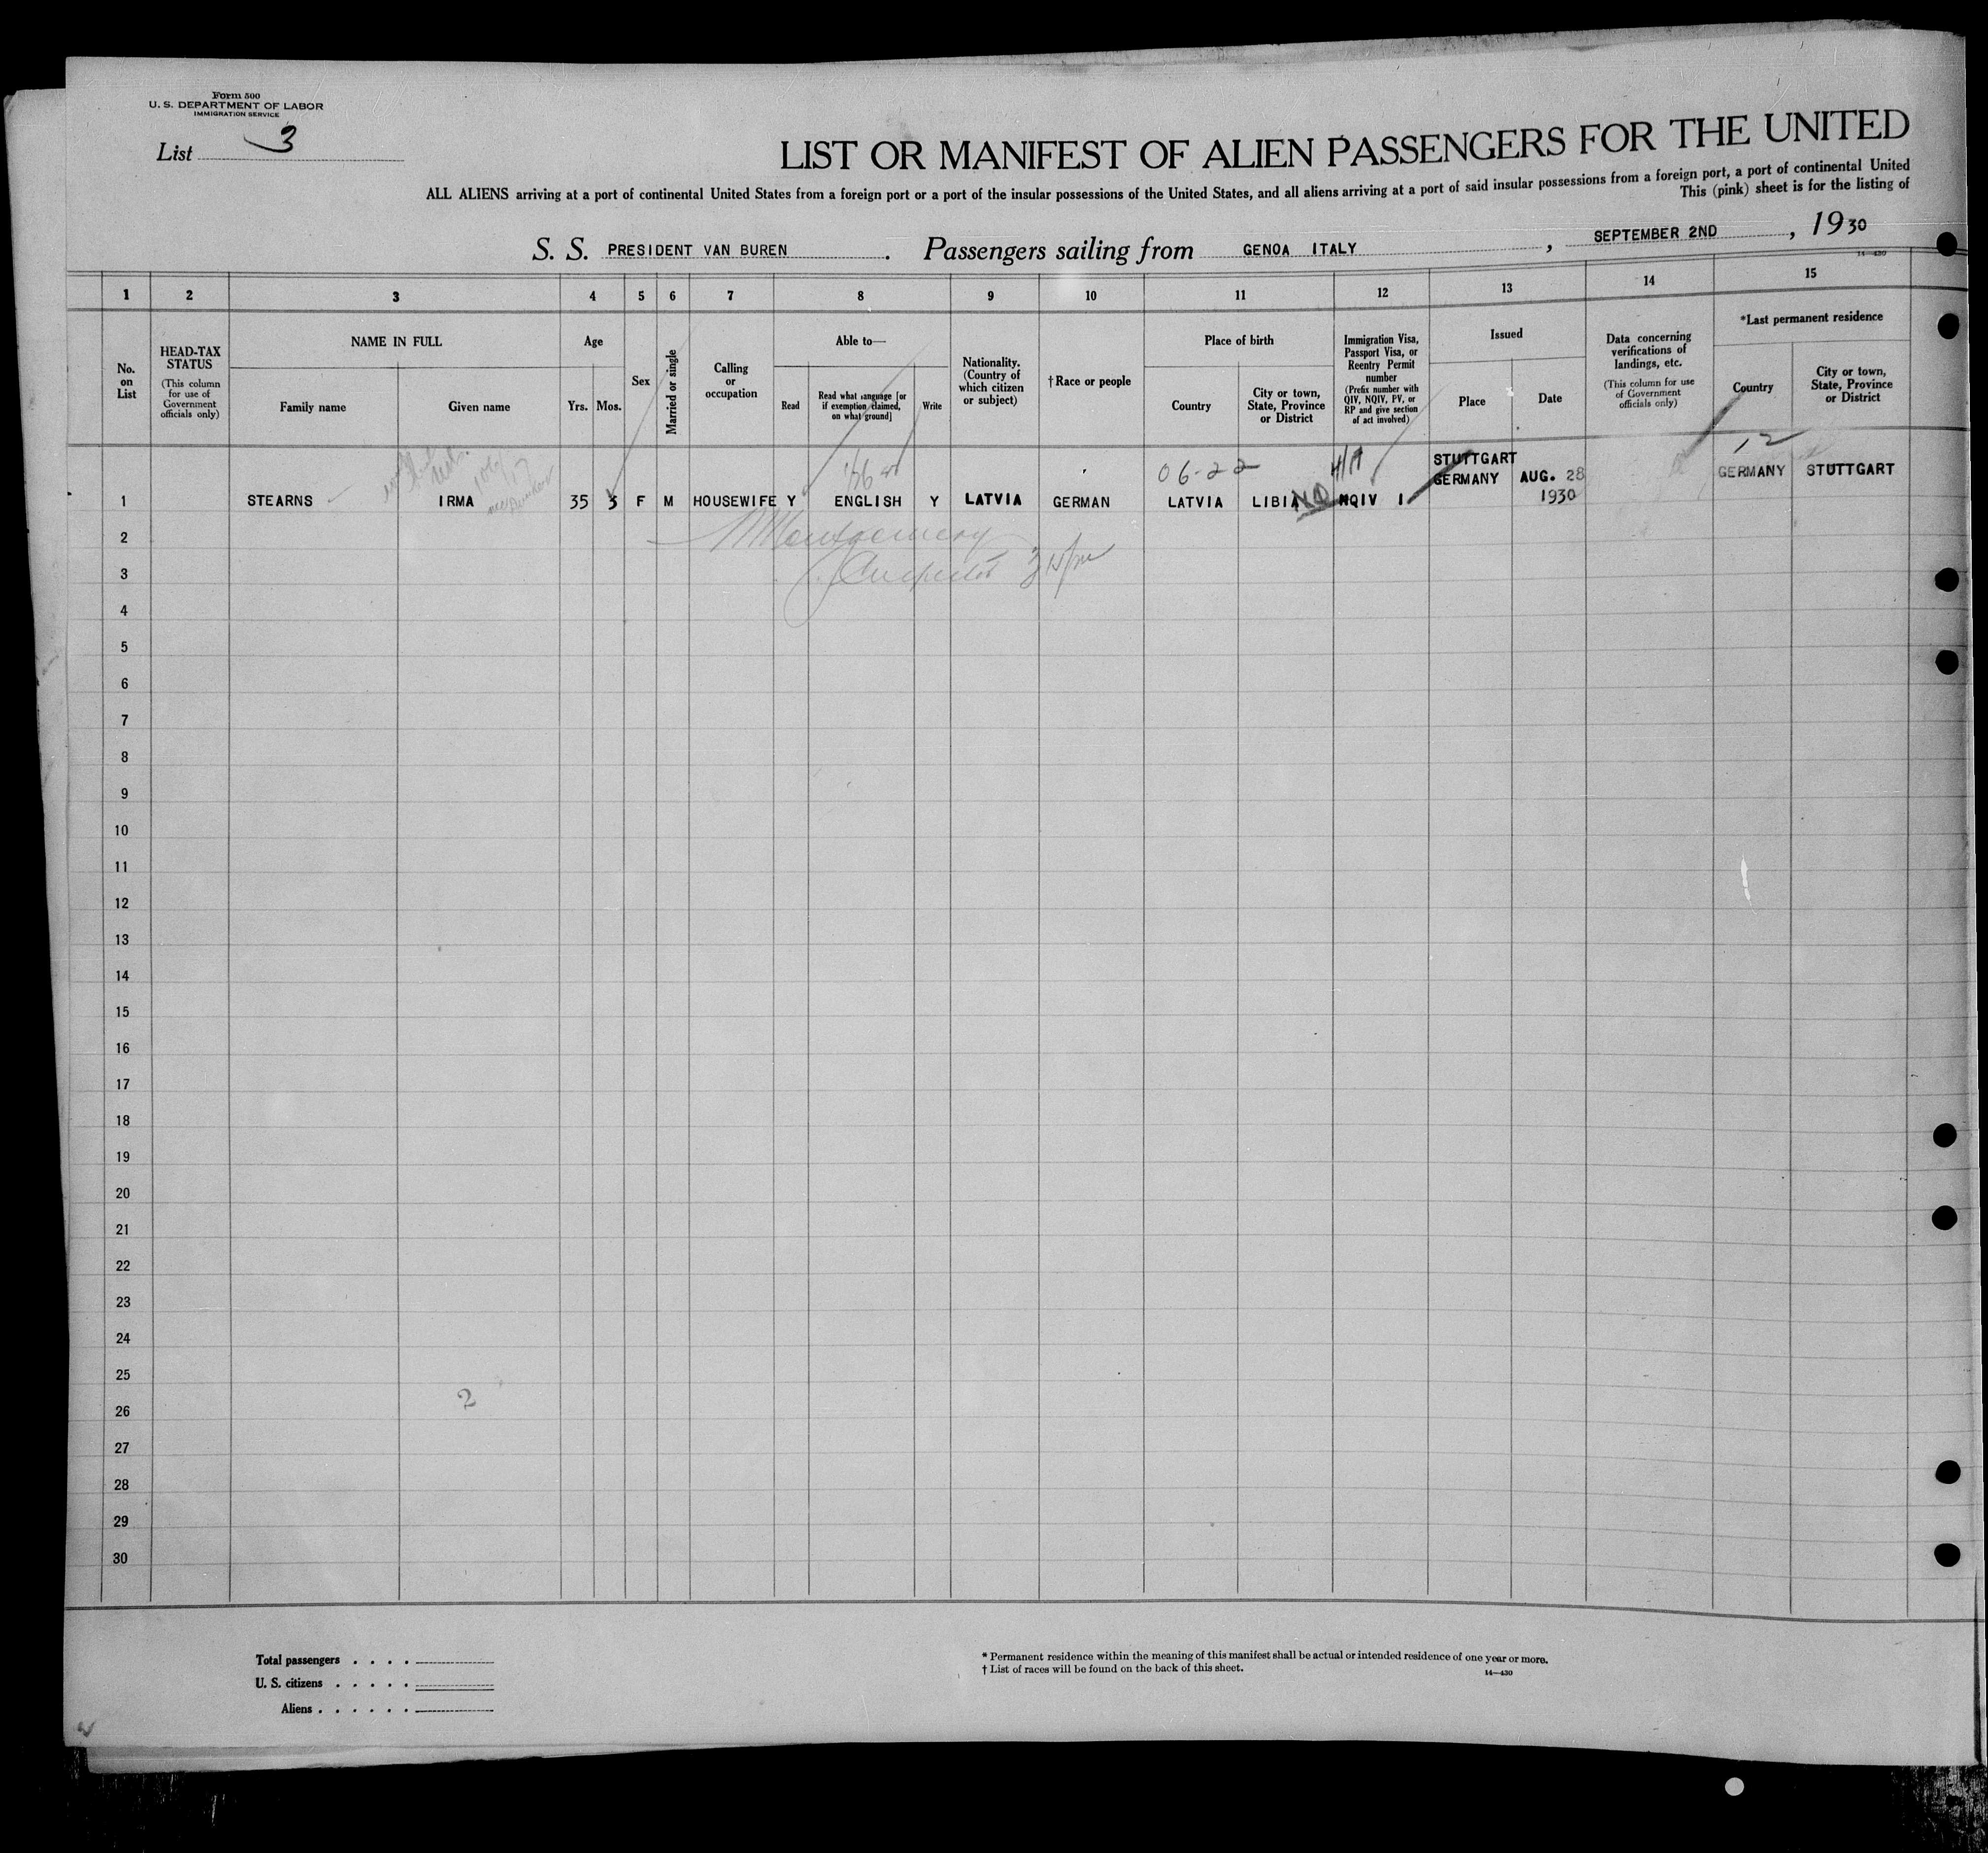 Form 500
U. S. DEPARTMENT OF LABOR
IMMIGRATION SERVICE
List 3
LIST OR MANIFEST OF ALIEN PASSENGERS FOR THE UNITED
ALL ALIENS arriving at a port of continental United States from a foreign port or a port of the insular possessions of the United States, and all aliens arriving at a port of said insular possessions from a foreign port, a port of continental United
This (pink) sheet is for the listing of
S. S. PRESIDENT VAN BUREN. Passengers sailing from GENOA ITALY, SEPTEMBER 2ND, 1930
14—430
1 2 3 4 5 6 7 8 9 10 11 12 13 14 15
No. on List
HEAD-TAX STATUS
(This column for use of Government officials only)
NAME IN FULL
Family name
Given name
Age
Yrs.
Mos.
Sex
Married or single
Calling or occupation
Able to—
Read
Read what language [or if exemption claimed, on what ground]
Write
Nationality. (Country of which citizen or subject)
† Race or people
Place of birth
Country
City or town, State, Province or District
Immigration Visa, Passport Visa, or Reentry Permit number
(Prefix number with QIV, NQIV, PV, or RP and give section of act involved)
Issued
Place
Date
Data concerning verifications of landings, etc.
(This column for use of Government officials only)
*Last permanent residence
Country
City or town, State, Province or District
06-22
12
STUTTGART
1 STEARNS IRMA 35 3 F M HOUSEWIFE Y ENGLISH Y LATVIA GERMAN LATVIA LIBIA ND NQIV 1 GERMANY AUG. 28 1930 GERMANY STUTTGART
Montgomery
2
Inspector
3
4
5
6
7
8
9
10
11
12
13
14
15
16
17
18
19
20
21
22
23
24
25
2
26
27
28
29
30
Total passengers . . . .
U. S. citizens . . . . .
Aliens . . . . . .
* Permanent residence within the meaning of this manifest shall be actual or intended residence of one year or more.
† List of races will be found on the back of this sheet.
14—430